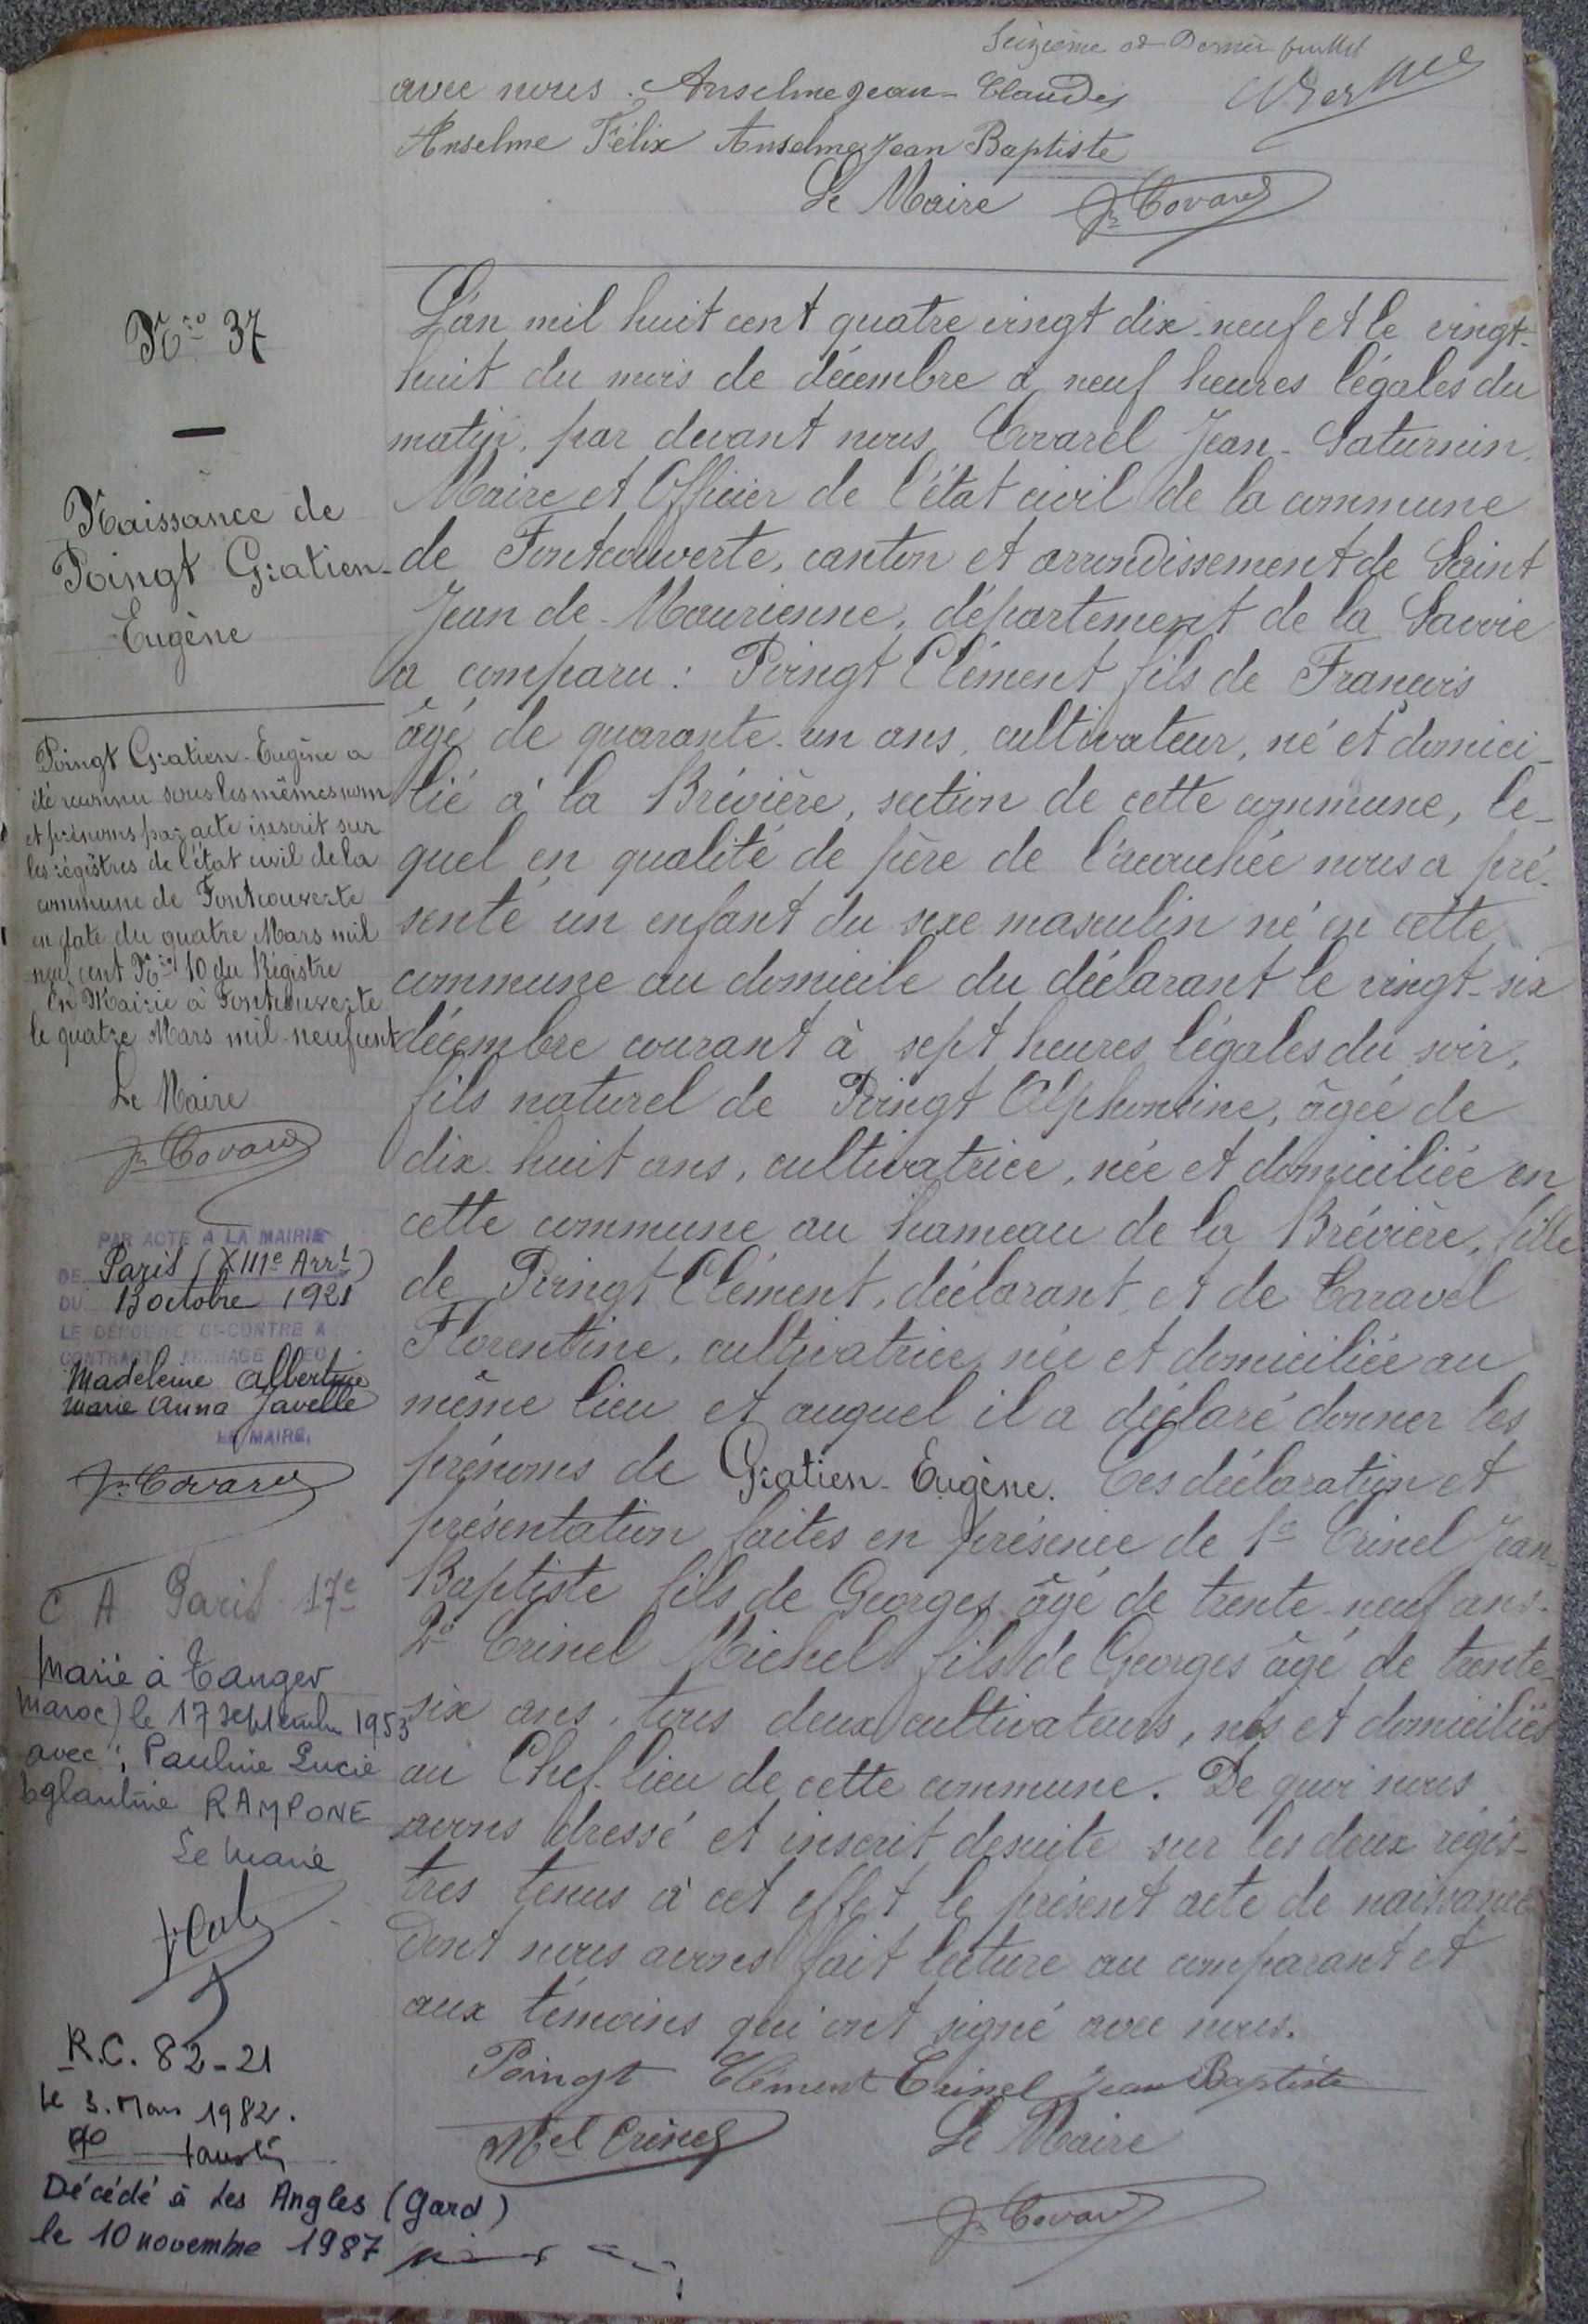 Seizième et Dernier feuillet
avec nous. Anselme Jean-Claude
Anselme Félix Anselme Jean Baptiste
Le Maire
Nro 37
Naissance de
Poingt Gratien-
Eugène
Poingt Gratien-Eugène a
été reconnu sous les mêmes nom
et prénoms par acte inscrit sur
les régistres de l'état civil de la
commune de Fontcouverte
en date du quatre Mars mil
neuf cent Nro 10 du Régistre
En Mairie à Fontcouverte
le quatre Mars mil-neuf cent
Le Maire
PAR ACTE A LA MAIRIE
DE Paris (XIIIe Arrt)
DU 13 octobre 1921
LE DÉNOMMÉ CI-CONTRE A
CONTRACTÉ MARIAGE AVEC
Madeleine Albertine
Marie Anna Javelle
LE MAIRE,
C A Paris 17e
Marié à Tanger
Maroc) le 17 septembre 1953
avec : Pauline Lucie
Eglantine RAMPONE
Le Maire
R.C. 82-21
le 3. Mars 1982.
Décédé à Les Angles (Gard)
le 10 novembre 1987
L'an mil huit cent quatre vingt dix-neuf et le vingt-
huit du mois de décembre à neuf heures légales du
matin, par devant nous, Covarel Jean-Saturnin,
Maire et Officier de l'état civil de la commune
de Fontcouverte, canton et arrondissement de Saint
Jean de-Maurienne, département de la Savoie
a comparu : Poingt Clément fils de François
âgé de quarante-un ans, cultivateur, né et domici-
lié à la Brévière, section de cette commune, le-
quel en qualité de père de l'accouchée nous a pré-
senté un enfant du sexe masculin né en cette
commune au domicile du déclarant le vingt-six
décembre courant à sept heures légales du soir,
fils naturel de Poingt Alphonsine, âgée de
dix-huit ans, cultivatrice, née et domiciliée en
cette commune au hameau de la Brévière, fille
de Poingt Clément, déclarant, et de Caravel
Florentine, cultivatrice, née et domiciliée au
même lieu et auquel il a déclaré donner les
prénoms de Gratien-Eugène. Ces déclaration et
présentation faites en présence de 1o Crinel Jean-
Baptiste fils de Georges âgé de trente-neuf ans-
2o Crinel Michel fils de Georges âgé de trente-
six ans, tous deux cultivateurs, nés et domiciliés
au Chef-lieu de cette commune. De quoi nous
avons dressé et inscrit desuite sur les deux régis-
tres tenus à cet effet le présent acte de naissance
dont nous avons fait lecture au comparant et
aux témoins qui ont signé avec nous.
Poingt Clément Crinel Jean Baptiste
Mel Crinel
Le Maire